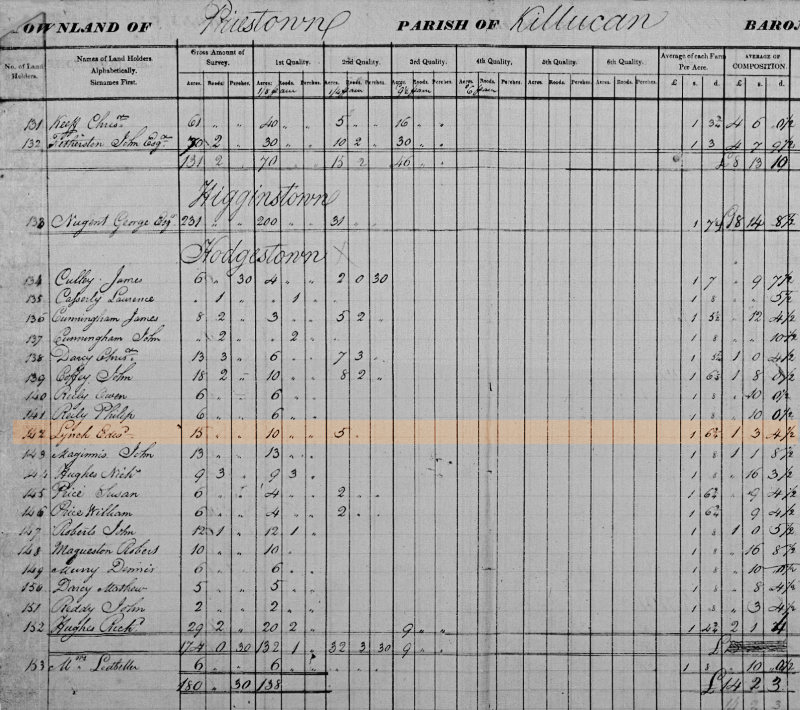 OWNLAND OF Priestown PARISH OF Killucan BARO
No. of Land Holders. Names of Land Holders. Alphabetically. Sirnames First. Gross Amount of Survey. 1st Quality. 2nd Quality. 3rd Quality. 4th Quality. 5th Quality. 6th Quality. Average of each Farm Per Acre. AVERAGE OF COMPOSITION.
Acres. Roods. Perches. Acres. Roods. Perches. Acres. Roods. Perches. Acres. Roods. Perches. Acres. Roods. Perches. £ s. d. £ s. d.
131 Keeff Chrisr. 61 " " 40 " " 5 " " 16 " " 1 3¾ 4 6 0½
132 Fetherston John Esqr. 70 2 " 30 " " 10 2 " 30 " " 1 3 4 7 9½
131 2 " 70 " " 15 2 46 " " £8 13 10
Higginstown
133 Nugent George Esqr 231 " " 200 " " 31 " " 1 7½ £18 14 8½
Hodgestown
134 Culley James 6 " 30 4 " " 2 0 30 1 7 " 9 7½
135 Casserly Laurence " 1 " " 1 " 1 8 " " 5½
136 Cunningham James 8 2 " 3 " " 5 2 " 1 5½ " 12 4½
137 Cunningham John " 2 " " 2 " 1 8 " " 10½
138 Darcy Chrisr. 13 3 " 6 " " 7 3 " 1 1 0 4½
139 Coffey John 18 2 " 10 " " 8 2 " 1 6½ 1 8 0½
140 Reily Owen 6 " " 6 " " 1 8 " 10 0½
141 Reily Philip 6 " " 6 " " 1 8 " 10 0½
142 Lynch Edwd 15 " " 10 " " 5 " 1 6¾ 1 3 4½
143 Maginnis John 13 " " 13 " " 1 8 1 1 8½
144 Hughes Nichs 9 3 " 9 3 " 1 8 " 16 3½
145 Price Susan 6 " " 4 " " 2 " " 1 6¾ " 9 4½
146 Price William 6 " " 4 " " 2 " " 1 6¾ " 9 4½
147 Roberts John 12 1 " 12 1 " 1 8 1 0 5½
148 Robert 10 " " 10 " " 1 8 " 16 8½
149 Murry Dennis 6 " " 6 " " 1 8 " 10 0½
150 Darcy Mathew 5 " " 5 " " 1 8 " 8 4½
151 Reddy John 2 " " 2 " " 1 8 " 3 4½
152 Hughes Richd. 29 2 " 20 2 " 9 " " 1 4¾ 2 1 4
174 0 30 132 1 " 32 3 30 9 " "
153 Ledbetter 6 " " 6 " " 1 8 " 10 0½
180 " 30 138 £14 2 3
14 2 3